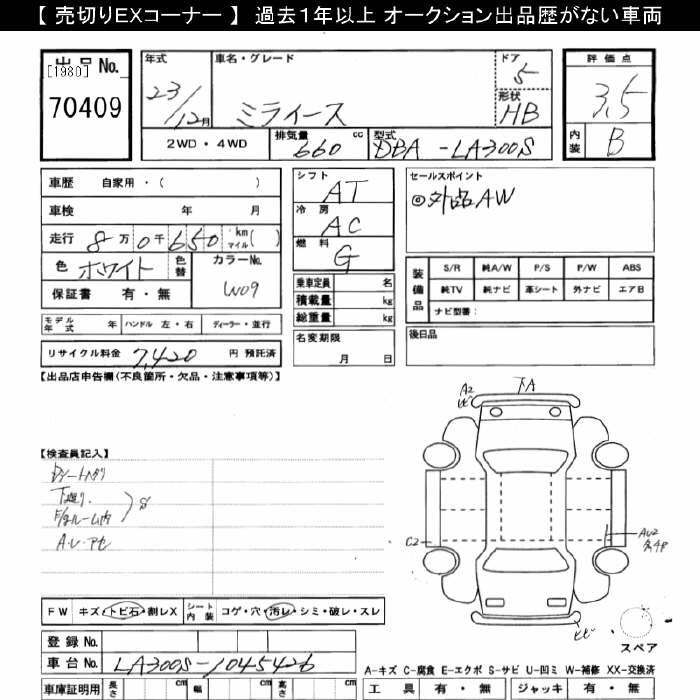 【 売切りEXコーナー 】 過去１年以上 オークション出品歴がない車両
出品 No.
[1980]
70409
年式
23/12月
車名・グレード
ミライース
ドア
5
形状
HB
2WD・4WD
排気量 660 cc
型式 DBA-LA300S
評価点
3.5
内装 B
車歴 自家用・( )
車検 年 月
走行 8万0千650 km マイル( )
色 ホワイト 色替
カラーNo.
W09
保証書 有・無
モデル年式 年 ハンドル 左・右 ディーラー・並行
リサイクル料金 7,420 円 預託済
シフト
AT
冷房
AC
燃料
G
乗車定員 名
積載量 kg
総重量 kg
名変期限
月 日
セールスポイント
◎外品AW
装備品
S/R 純A/W P/S P/W ABS
純TV 純ナビ 革シート 外ナビ エアB
ナビ型番：
後日品
【出品店申告欄(不良箇所・欠品・注意事項等)】
【検査員記入】
下廻り
F/gルーム内
S
A2
ヒビ
下A
C2
AU2
ヒビ
スペア
FW キズ・トビ石・割レX シート内装 コゲ・穴・汚レ・シミ・破レ・スレ
登録 No.
車台 No. LA300S-1045426
車庫証明用 長さ cm 幅 cm 高さ cm
A-キズ C-腐食 E-エクボ S-サビ U-凹ミ W-補修 XX-交換済
工具 有・無 ジャッキ 有・無